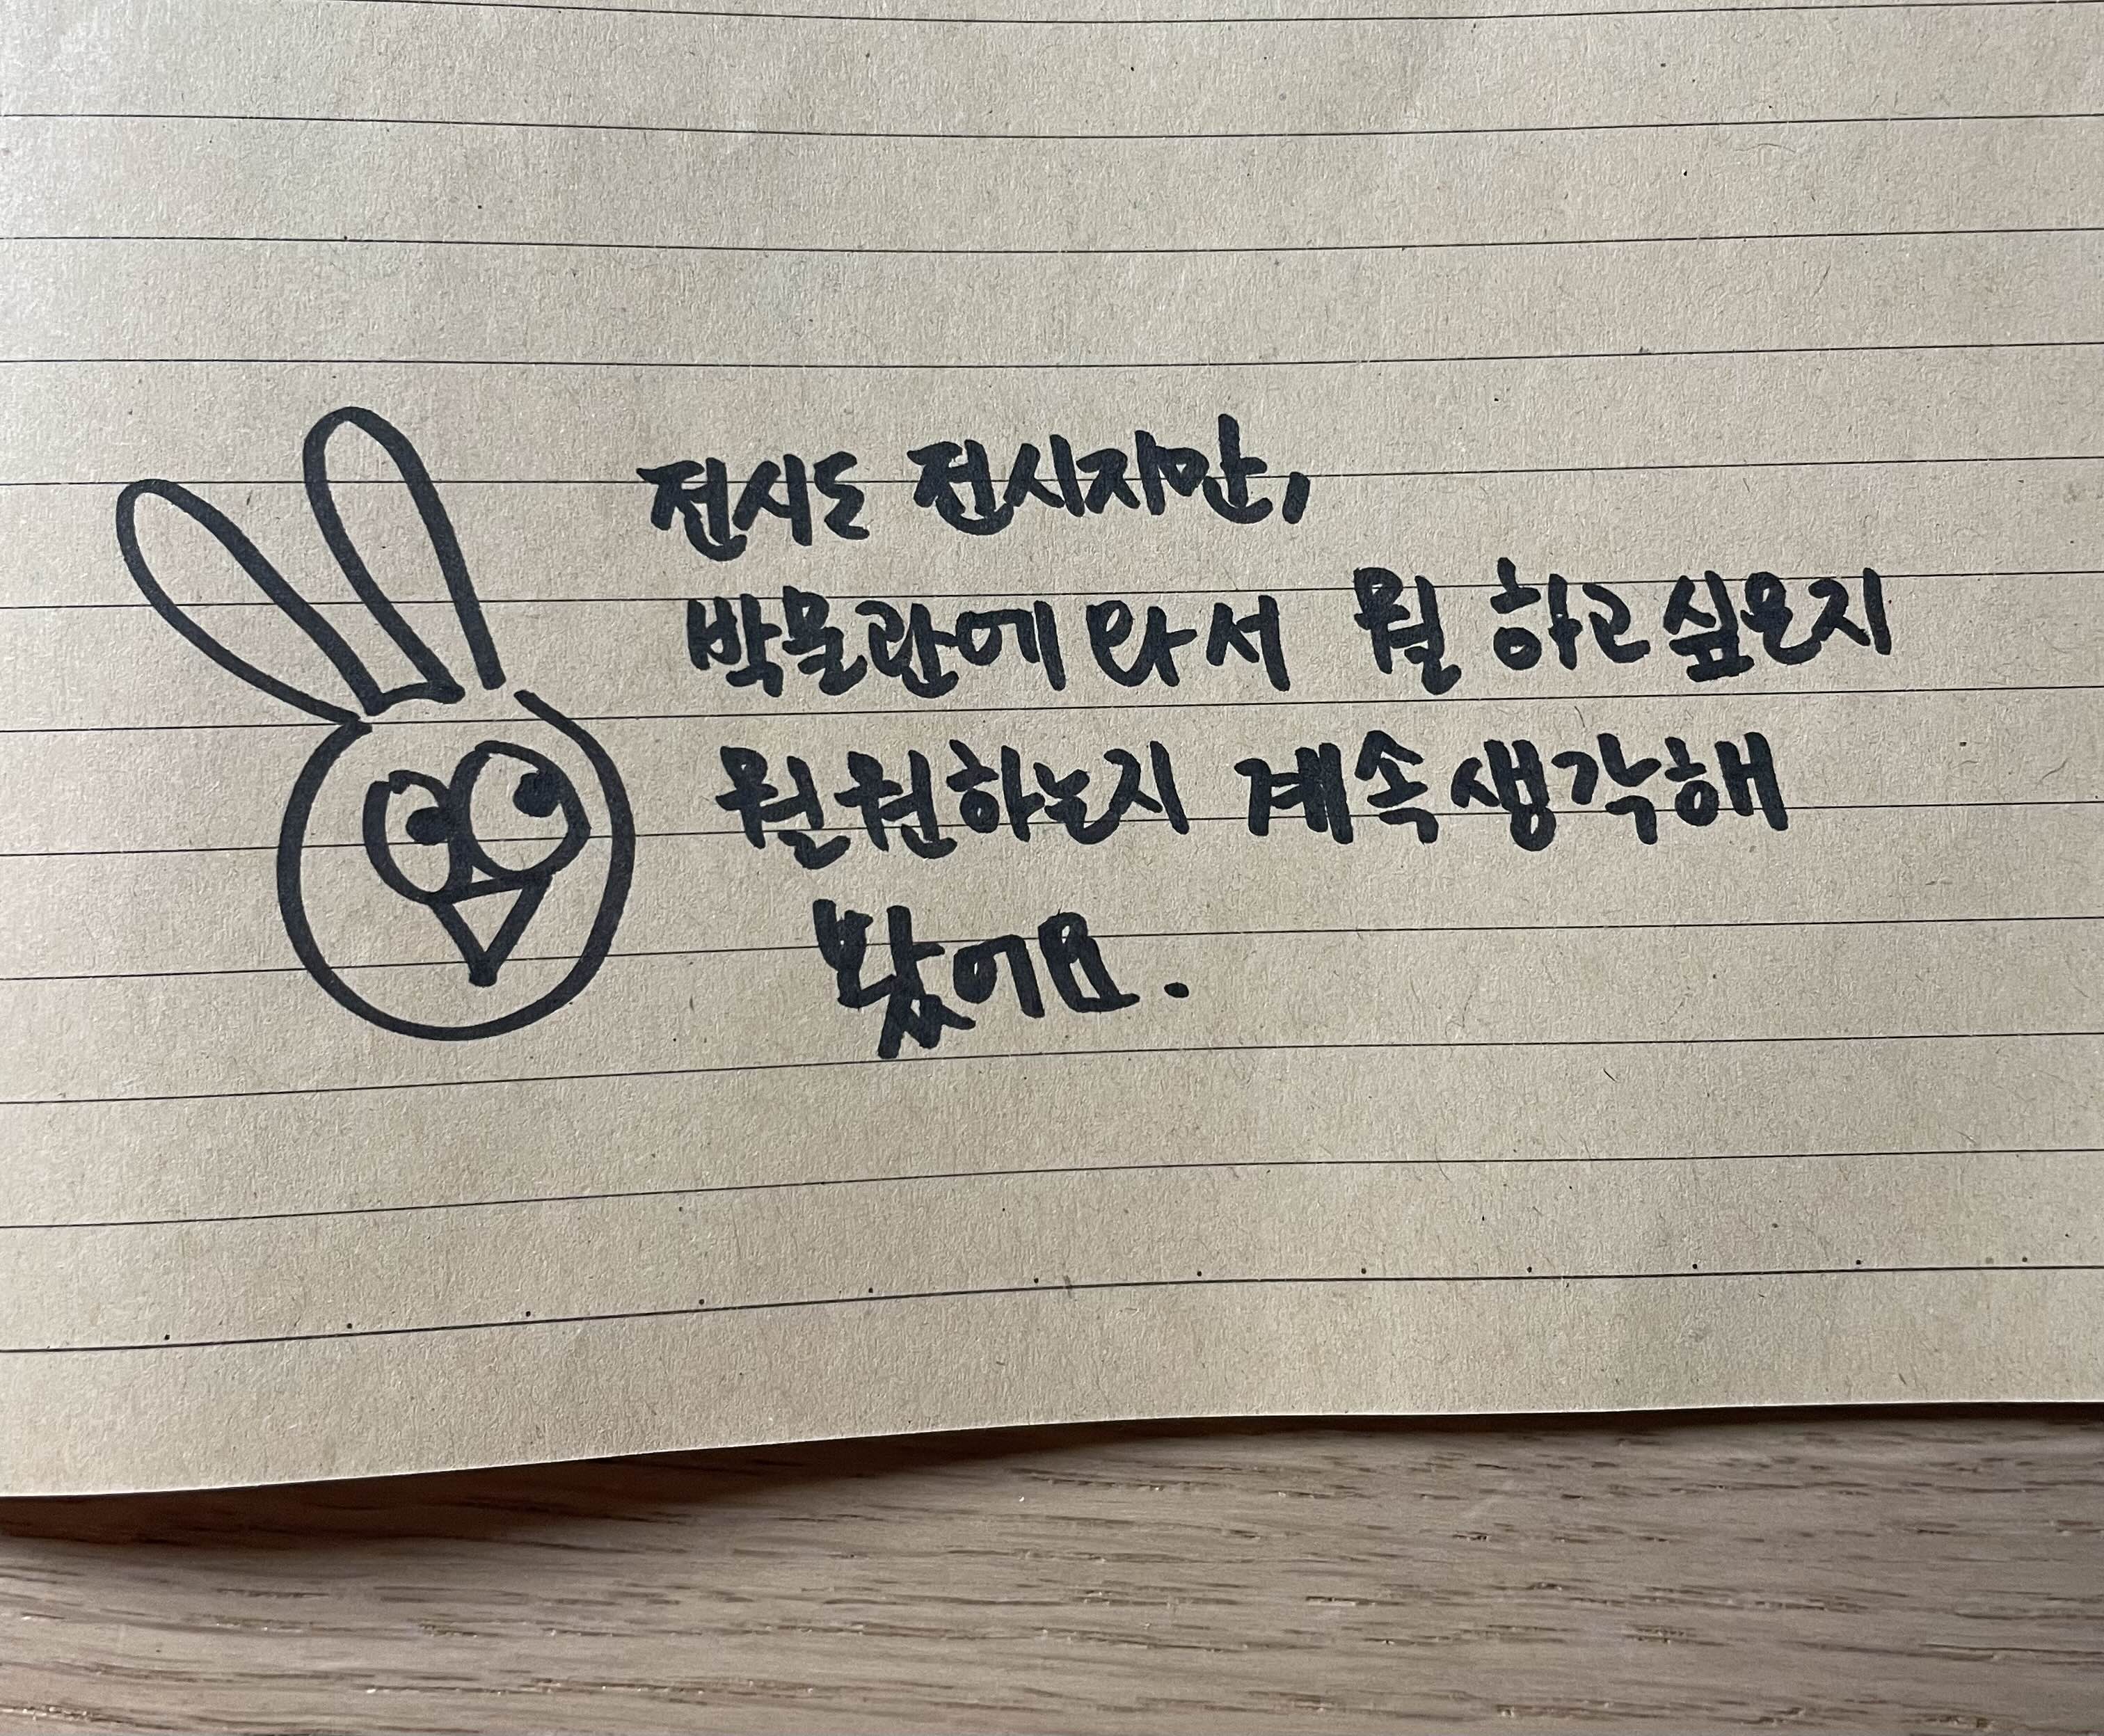 전시도 전시지만,
박물관에 와서 뭘 하고 싶은지
뭘 원하는지 계속 생각해
봤어요.